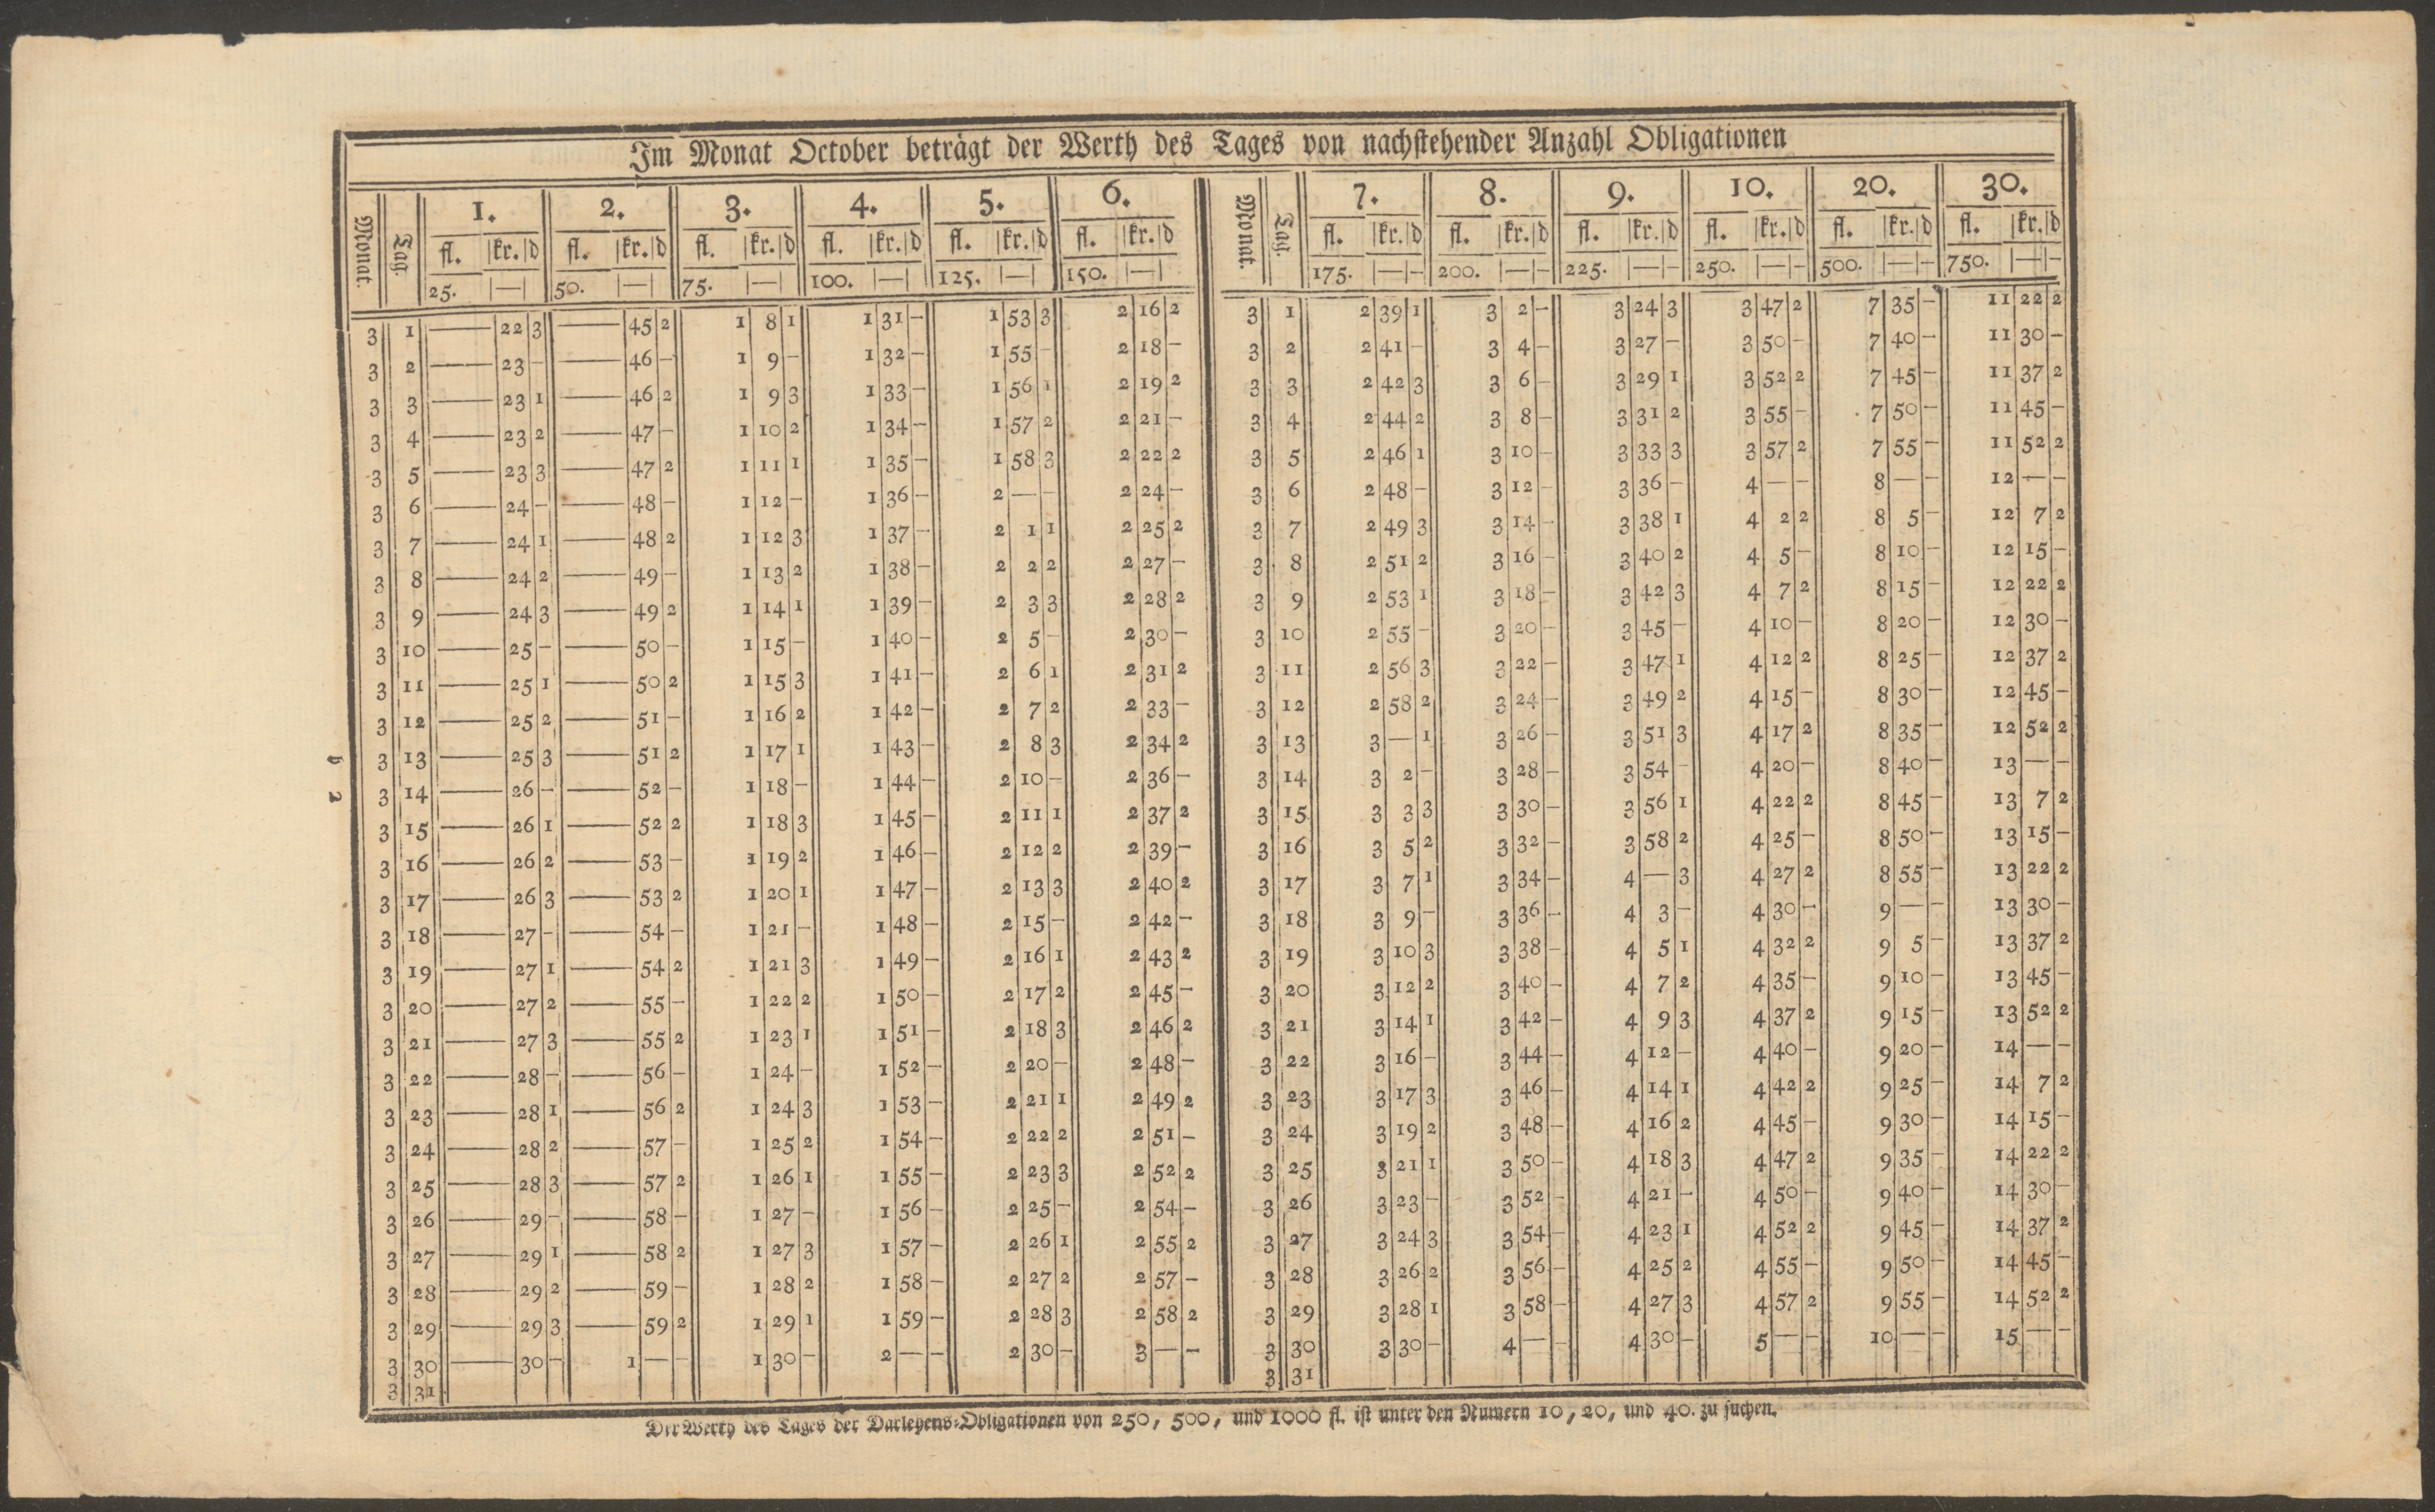 Im Monat October beträgt der Werth des Tages von nachstehender Anzahl Obligationen
Monat. Tag. 1. 2. 3. 4. 5. 6. Monat. Tag. 7. 8. 9. 10. 20. 30.
fl. kr. d fl. kr. d fl. kr. d fl. kr. d fl. kr. d fl. kr. d fl. kr. d fl. kr. d fl. kr. d fl. kr. d fl. kr. d fl. kr. d
25. — 50. — 75. — 100. — 125. — 150. — 175. — – 200. — – 225. — – 250. — – 500. — – 750. — –
3 1 — 22 3 — 45 2 1 8 1 1 31 – 1 53 3 2 16 2 3 1 2 39 1 3 2 – 3 24 3 3 47 2 7 35 – 11 22 2
3 2 — 23 – — 46 – 1 9 – 1 32 – 1 55 – 2 18 – 3 2 2 41 – 3 4 – 3 27 – 3 50 – 7 40 – 11 30 –
3 3 — 23 1 — 46 2 1 9 3 1 33 – 1 56 1 2 19 2 3 3 2 42 3 3 6 – 3 29 1 3 52 2 7 45 – 11 37 2
3 4 — 23 2 — 47 – 1 10 2 1 34 – 1 57 2 2 21 – 3 4 2 44 2 3 8 – 3 31 2 3 55 – 7 50 – 11 45 –
3 5 — 23 3 — 47 2 1 11 1 1 35 – 1 58 3 2 22 2 3 5 2 46 1 3 10 – 3 33 3 3 57 2 7 55 – 11 52 2
3 6 — 24 – — 48 – 1 12 – 1 36 – 2 — – 2 24 – 3 6 2 48 – 3 12 – 3 36 – 4 — – 8 — – 12 — –
3 7 — 24 1 — 48 2 1 12 3 1 37 – 2 1 1 2 25 2 3 7 2 49 3 3 14 – 3 38 1 4 2 2 8 5 – 12 7 2
3 8 — 24 2 — 49 – 1 13 2 1 38 – 2 2 2 2 27 – 3 8 2 51 2 3 16 – 3 40 2 4 5 – 8 10 – 12 15 –
3 9 — 24 3 — 49 2 1 14 1 1 39 – 2 3 3 2 28 2 3 9 2 53 1 3 18 – 3 42 3 4 7 2 8 15 – 12 22 2
3 10 — 25 – — 50 – 1 15 – 1 40 – 2 5 – 2 30 – 3 10 2 55 – 3 20 – 3 45 – 4 10 – 8 20 – 12 30 –
3 11 — 25 1 — 50 2 1 15 3 1 41 – 2 6 1 2 31 2 3 11 2 56 3 3 22 – 3 47 1 4 12 2 8 25 – 12 37 2
3 12 — 25 2 — 51 – 1 16 2 1 42 – 2 7 2 2 33 – 3 12 2 58 2 3 24 – 3 49 2 4 15 – 8 30 – 12 45 –
3 13 — 25 3 — 51 2 1 17 1 1 43 – 2 8 3 2 34 2 3 13 3 — 1 3 26 – 3 51 3 4 17 2 8 35 – 12 52 2
3 14 — 26 – — 52 – 1 18 – 1 44 – 2 10 – 2 36 – 3 14 3 2 – 3 28 – 3 54 – 4 20 – 8 40 – 13 — –
3 15 — 26 1 — 52 2 1 18 3 1 45 – 2 11 1 2 37 2 3 15 3 3 3 3 30 – 3 56 1 4 22 2 8 45 – 13 7 2
3 16 — 26 2 — 53 – 1 19 2 1 46 – 2 12 2 2 39 – 3 16 3 5 2 3 32 – 3 58 2 4 25 – 8 50 – 13 15 –
3 17 — 26 3 — 53 2 1 20 1 1 47 – 2 13 3 2 40 2 3 17 3 7 1 3 34 – 4 — 3 4 27 2 8 55 – 13 22 2
3 18 — 27 – — 54 – 1 21 – 1 48 – 2 15 – 2 42 – 3 18 3 9 – 3 36 – 4 3 – 4 30 – 9 — – 13 30 –
3 19 — 27 1 — 54 2 1 21 3 1 49 – 2 16 1 2 43 2 3 19 3 10 3 3 38 – 4 5 1 4 32 2 9 5 – 13 37 2
3 20 — 27 2 — 55 – 1 22 2 1 50 – 2 17 2 2 45 – 3 20 3 12 2 3 40 – 4 7 2 4 35 – 9 10 – 13 45 –
3 21 — 27 3 — 55 2 1 23 1 1 51 – 2 18 3 2 46 2 3 21 3 14 1 3 42 – 4 9 3 4 37 2 9 15 – 13 52 2
3 22 — 28 – — 56 – 1 24 – 1 52 – 2 20 – 2 48 – 3 22 3 16 – 3 44 – 4 12 – 4 40 – 9 20 – 14 — –
3 23 — 28 1 — 56 2 1 24 3 1 53 – 2 21 1 2 49 2 3 23 3 17 3 3 46 – 4 14 1 4 42 2 9 25 – 14 7 2
3 24 — 28 2 — 57 – 1 25 2 1 54 – 2 22 2 2 51 – 3 24 3 19 2 3 48 – 4 16 2 4 45 – 9 30 – 14 15 –
3 25 — 28 3 — 57 2 1 26 1 1 55 – 2 23 3 2 52 2 3 25 3 21 1 3 50 – 4 18 3 4 47 2 9 35 – 14 22 2
3 26 — 29 – — 58 – 1 27 – 1 56 – 2 25 – 2 54 – 3 26 3 23 – 3 52 – 4 21 – 4 50 – 9 40 – 14 30 –
3 27 — 29 1 — 58 2 1 27 3 1 57 – 2 26 1 2 55 2 3 27 3 24 3 3 54 – 4 23 1 4 52 2 9 45 – 14 37 2
3 28 — 29 2 — 59 – 1 28 2 1 58 – 2 27 2 2 57 – 3 28 3 26 2 3 56 – 4 25 2 4 55 – 9 50 – 14 45 –
3 29 — 29 3 — 59 2 1 29 1 1 59 – 2 28 3 2 58 2 3 29 3 28 1 3 58 – 4 27 3 4 57 2 9 55 – 14 52 2
3 30 — 30 – 1 — – 1 30 – 2 — – 2 30 – 3 — – 3 30 3 30 – 4 — – 4 30 – 5 — – 10 — – 15 — –
3 31 3 31
Der Werth des Tages der Darlehens-Obligationen von 250, 500, und 1000 fl. ist unter den Numern 10, 20, und 40. zu suchen.